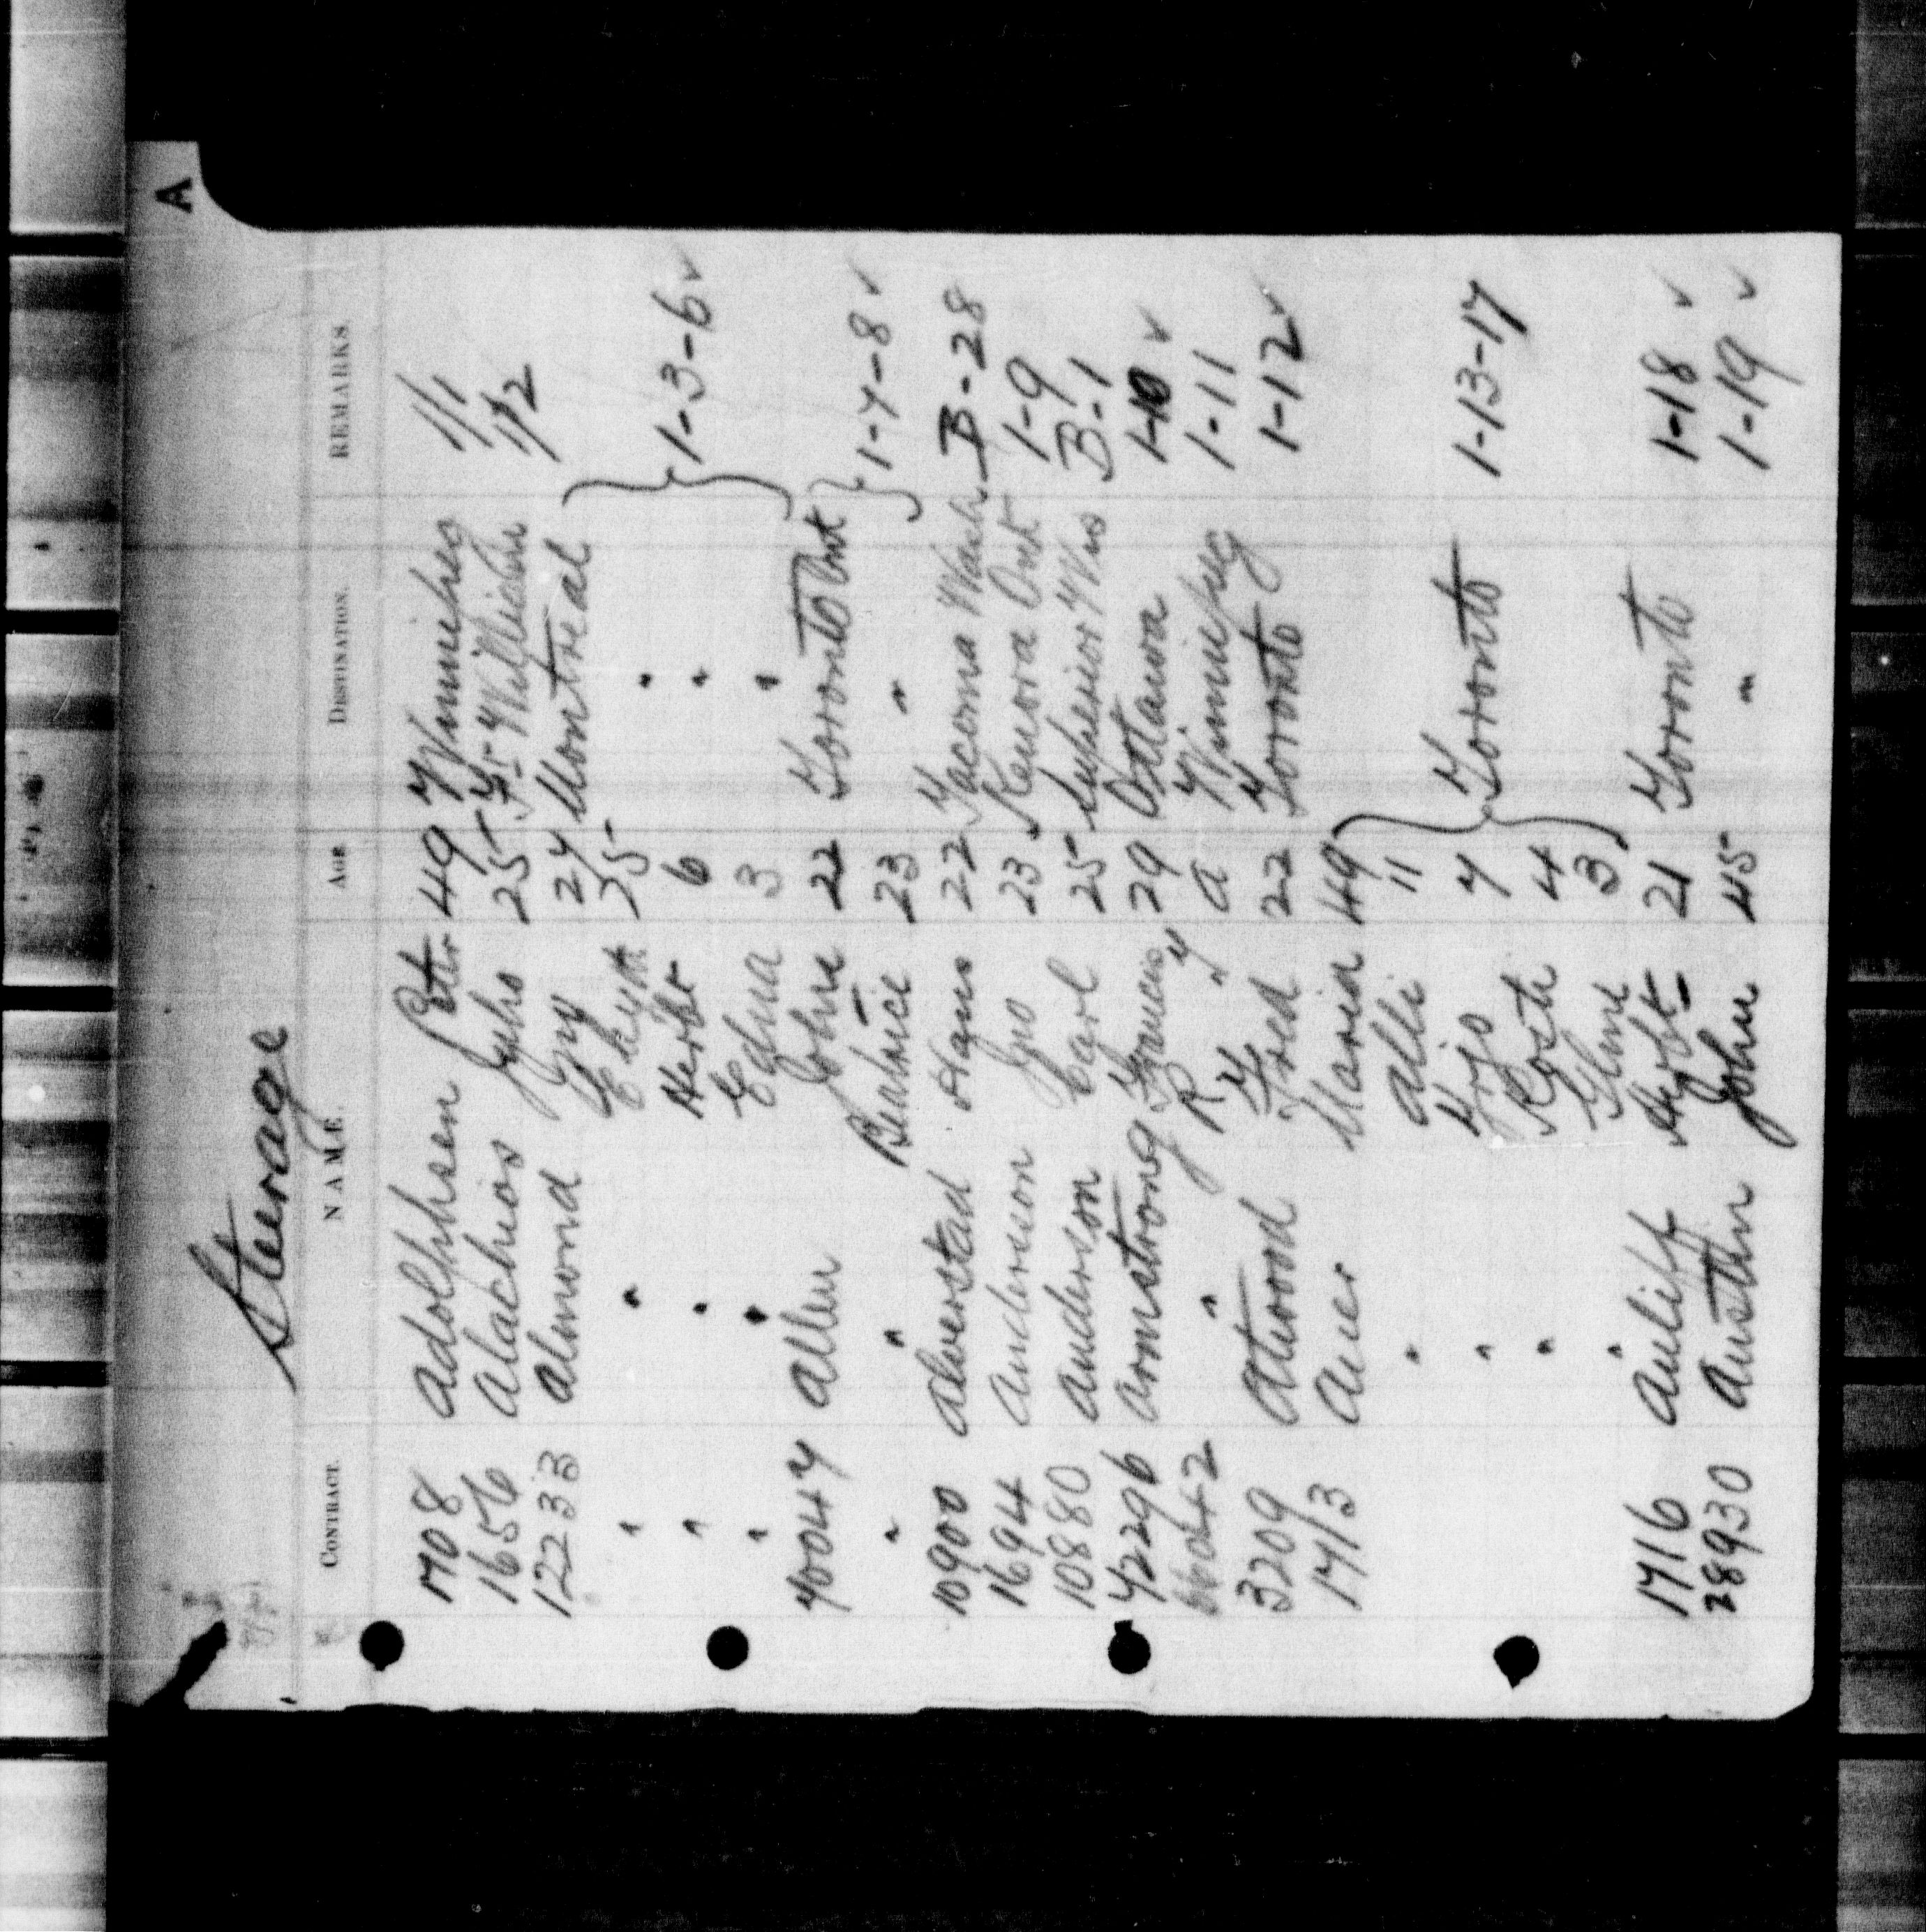 A
Steerage
CONTRACT. NAME. AGE DISTINATION. REMARKS.
1708 Adolphsen Peter 49 Winnipeg 1/1
1656 Alachios Juho 25 Ft William 1/2
12233 Almond Guy 27 Montreal
" " 35 "
" " Herbt 6 " 1-3-6 ✓
" " Edna 3 "
70047 Allen John 22 Toronto Ont
" " Beatrice 23 " 1-7-8 ✓
10900 Alverstad Hans 22 Tacoma Wash B-28
1694 Anderson Jno 23 Kenora Ont 1-9
10880 Anderson Carl 25 Superior Wis B-1
42296 Armstrong Frances 29 Ottawa 1-10 ✓
66042 " R " a Winnipeg 1-11
3209 Atwood Fred 22 Toronto 1-12 ✓
1713 Auer Maria 49
" Alli 11
" Yrjo 7 Toronto 1-13-17
" 4
" 3
1716 Auliff Herbt 21 Toronto 1-18 ✓
28930 Austin John 45 " 1-19 ✓